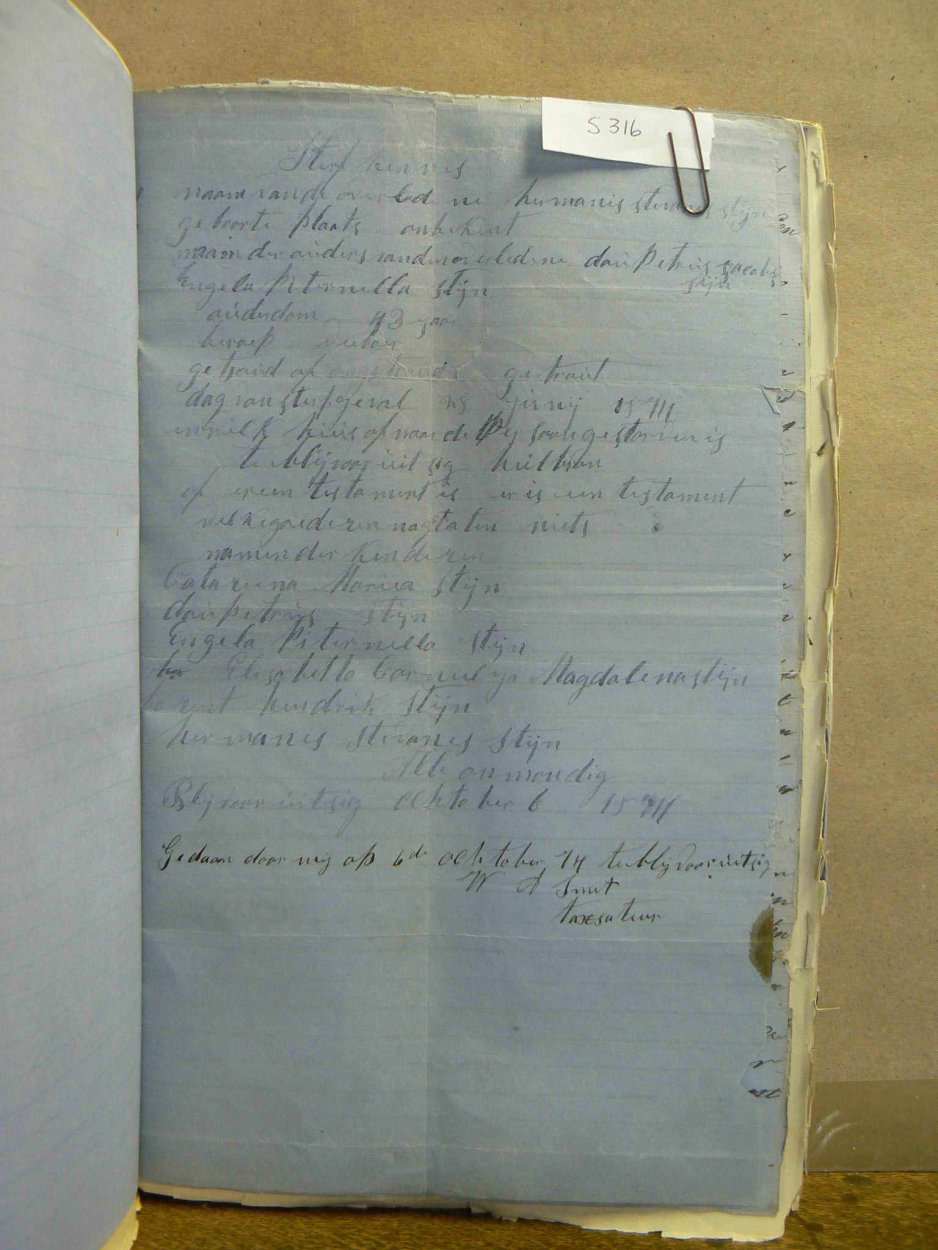 S316
Sterf kennis
naam vande overledene hermanis stevanis stijn
geboorte plaats onbekent
naam der ouders vanden overledene daûpetrus jacobs stijn
Engela Piternella stijn
ouderdom 43 yaar
beroep
getroud of ongetroud getrout
dag van sterfgeval 1874
in welk huis of waar de Persoon gestorven is
te blijvooruitsig heilbron
of er een testament is er is een testament
welke goederen nagtaten niets
namen der kinderen
Catarina Maria Stijn
daûpetrus stijn
Engela Piternella stijn
Elisabetta Cornelya Magdalena stijn
barent hendrik stijn
hermanes stevanes stijn
Alle onmondig
Blijvooruitsig ocktober 6 1874
Gedaan door mij op 6de ocktober 74 te blyvooruitsig
W A Smit
taxsateur